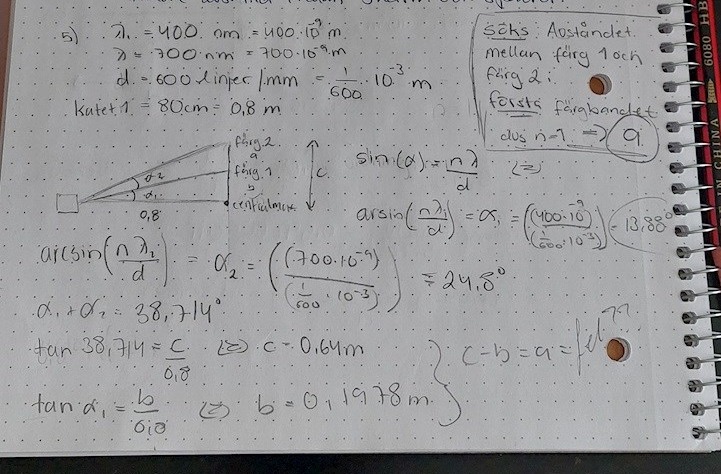 5) λ₁ = 400 nm = 400·10⁻⁹ m
λ = 700 nm = 700·10⁻⁹ m
d = 600 linjer/mm = 1/600 · 10⁻³ m
Katet 1 = 80cm = 0,8 m
Söks: Avståndet
mellan färg 1 och
färg 2 i
första färgbandet
dvs n=1 => a
färg 2
a
färg 1
b
centralmax
α₂
α₁
0,8
c
sin(α) = nλ/d (=)
arsin(nλ₁/d) = α₁ = ((400·10⁻⁹)/(1/600·10⁻³)) = 13,88°
arcsin(nλ₂/d) = α₂ = ((700·10⁻⁹)/(1/600·10⁻³)) = 24,8°
α₁+α₂ = 38,714°
tan 38,714 = c/0,8 (=) c = 0,64m
tan α₁ = b/0,8 (=) b = 0,1978 m
c-b = a = fel??
6080 HB
CHINA